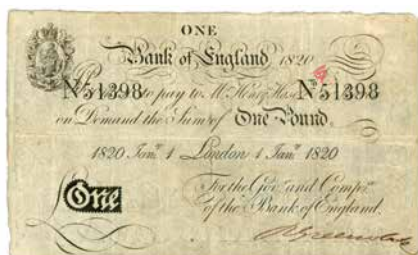 ONE
Bank of England 1820
No. 51398 to pay to Mr. Henry Hase No. 51398
on Demand the Sum of One Pound.
1820 Jany. 1 London 1 Jany. 1820
For the Govr. and Compa.
of the Bank of England.
One